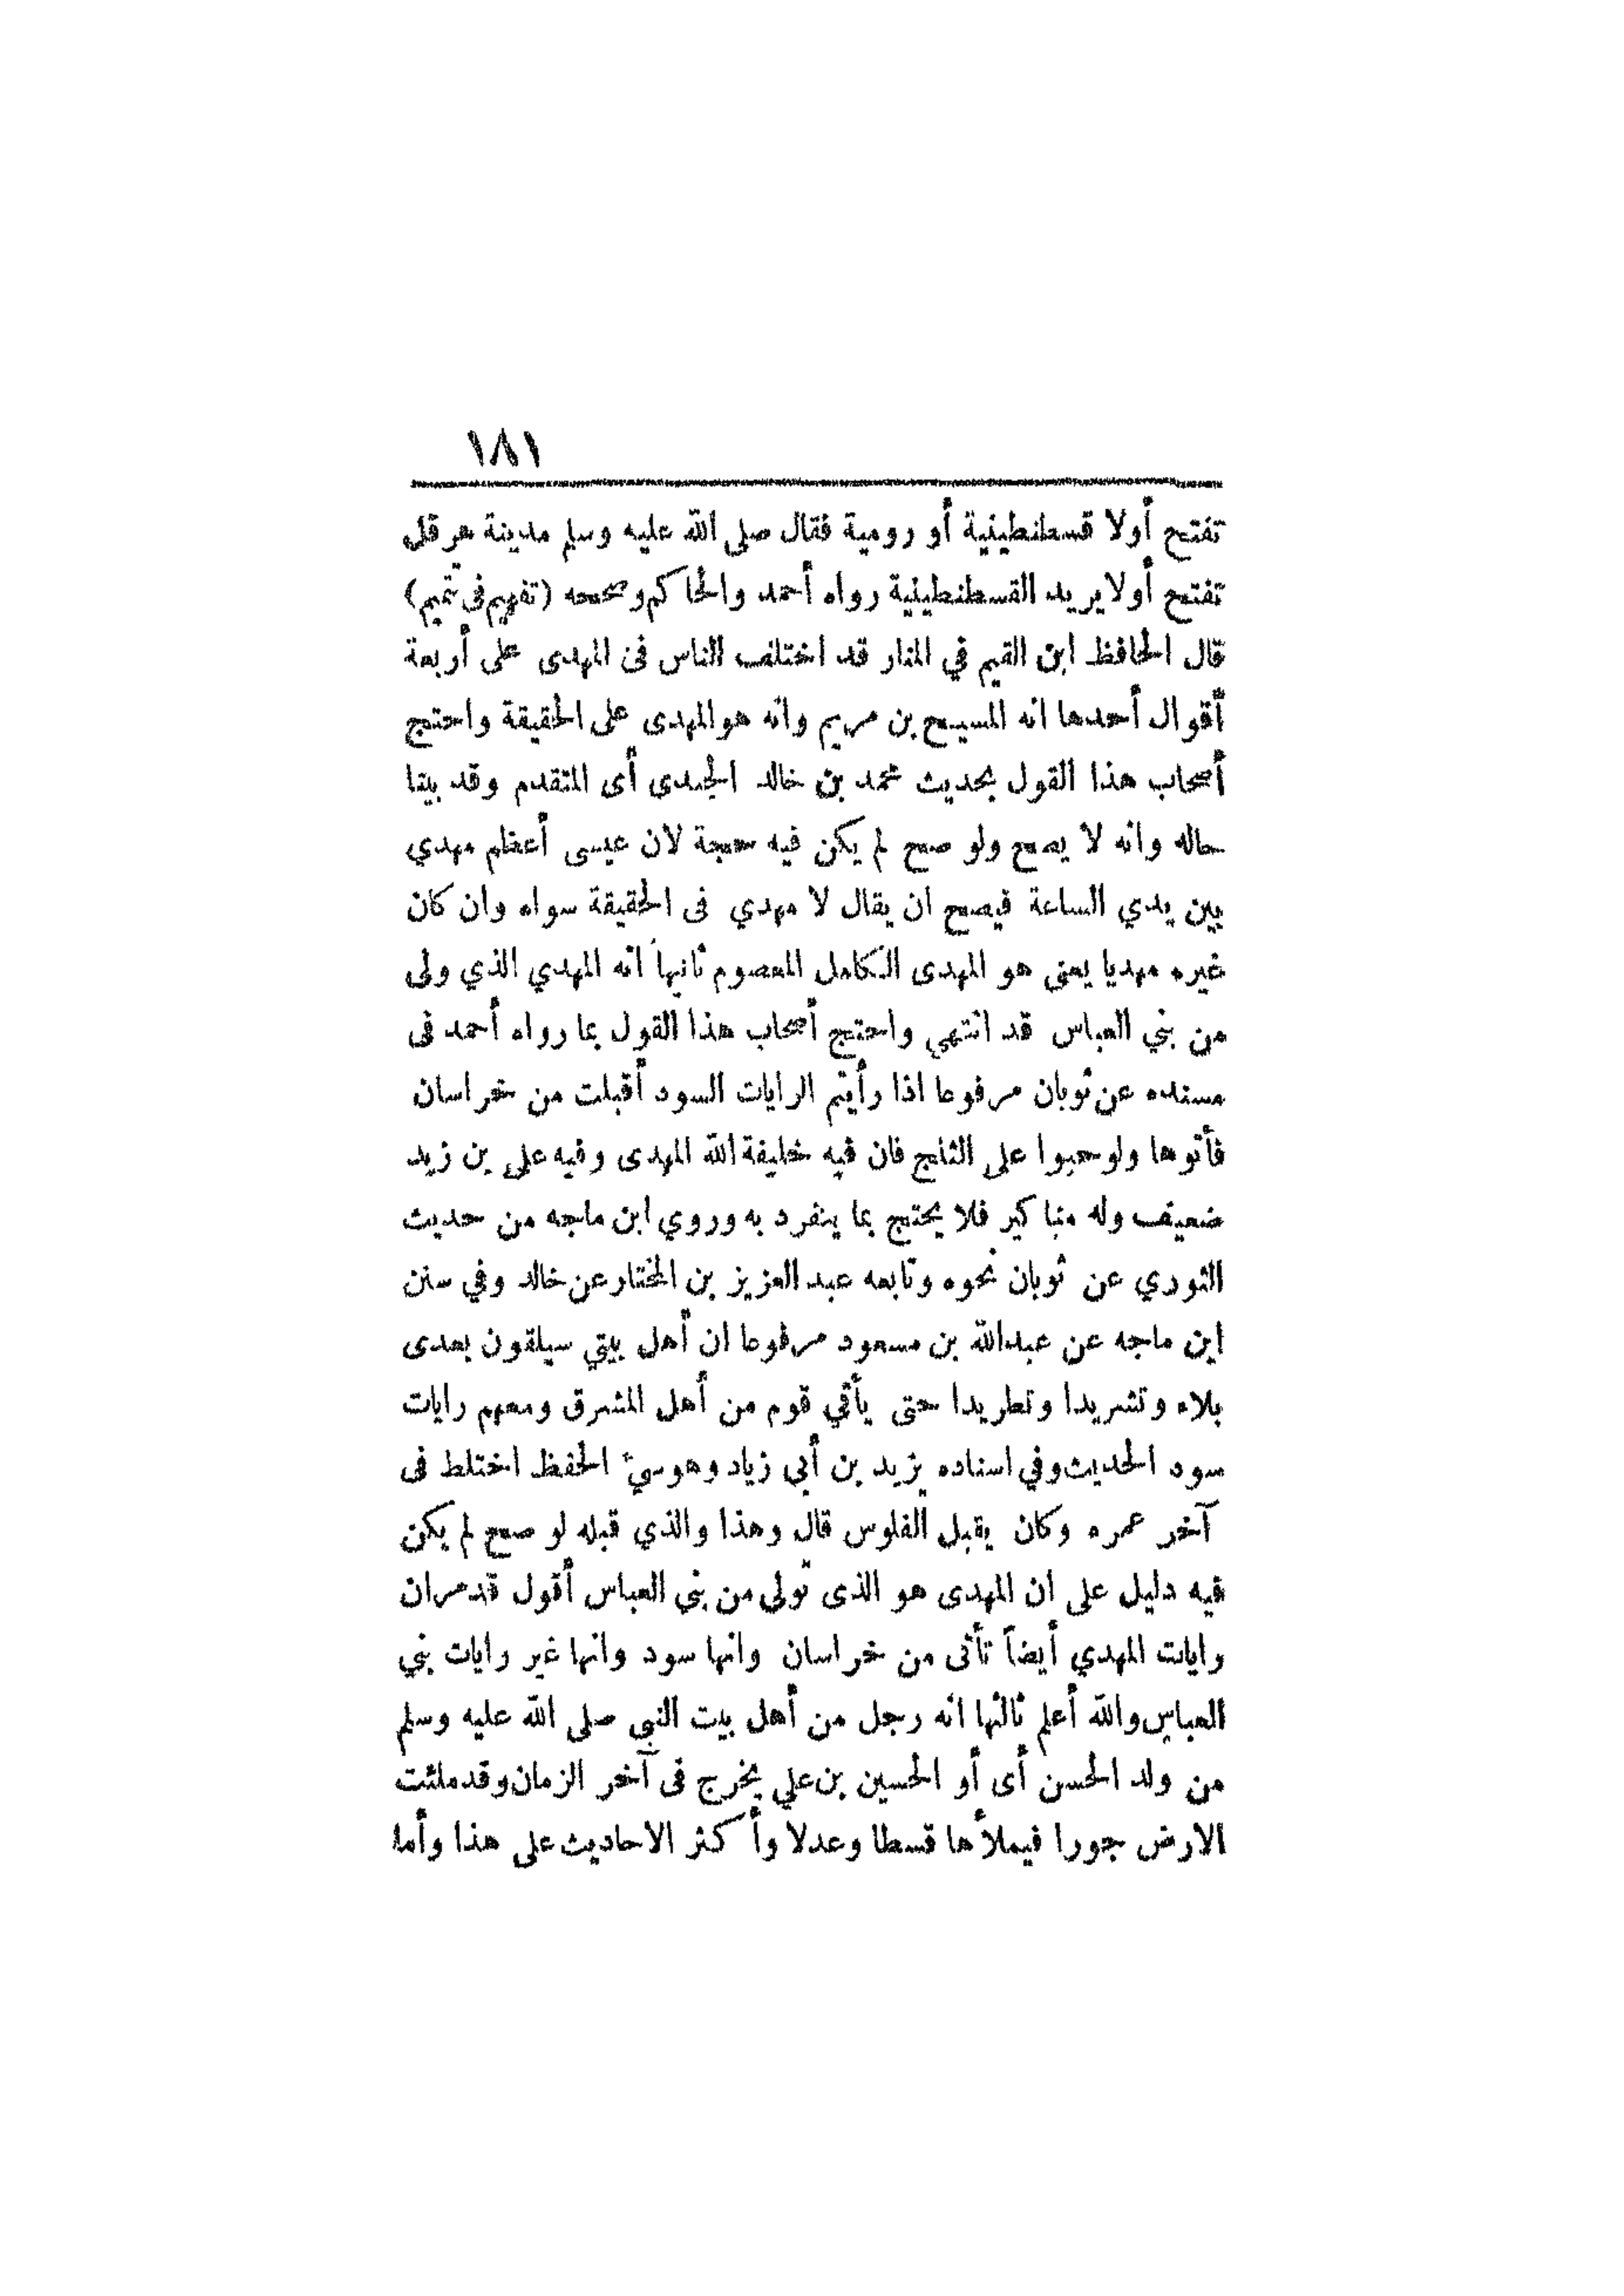 ١٨١
تفتح أولا قسطنطينية أو رومية فقال صلى الله عليه وسلم مدينة هرقل
تفتح أولا يريد القسطنطينية رواه أحمد والحاكم وصححه (تفهيم في تتميم)
قال الحافظ ابن القيم في المنار قد اختلف الناس فى المهدى على أربعة
أقوال أحدها انه المسيح بن مريم وانه هو المهدى على الحقيقة واحتج
أصحاب هذا القول بحديث محمد بن خالد الجندى أى المتقدم وقد بينا
حاله وانه لا يصح ولو صح لم يكن فيه حجة لان عيسى أعظم مهدي
بين يدي الساعة فيصح ان يقال لا مهدي فى الحقيقة سواه وان كان
غيره مهديا يعنى هو المهدى الكامل المعصوم ثانيها انه المهدي الذي ولى
من بني العباس قد انتهي واحتج أصحاب هذا القول بما رواه أحمد فى
مسنده عن ثوبان مرفوعا اذا رأيتم الرايات السود أقبلت من خراسان
فأتوها ولو حبوا على الثلج فان فيه خليفة الله المهدى وفيه على بن زيد
ضعيف وله مناكير فلا يحتج بما ينفرد به وروي ابن ماجه من حديث
الثوري عن ثوبان نحوه وتابعه عبد العزيز بن المختار عن خالد وفي سنن
ابن ماجه عن عبد الله بن مسعود مرفوعا ان أهل بيتي سيلقون بعدى
بلاء وتشريدا وتطريدا حتى يأتي قوم من أهل المشرق ومعهم رايات
سود الحديث وفي اسناده يزيد بن أبي زياد وهو سيئ الحفظ اختلط فى
آخر عمره وكان يقبل الفلوس قال وهذا والذي قبله لو صح لم يكن
فيه دليل على ان المهدى هو الذى تولى من بني العباس أقول قد مر ان
رايات المهدي أيضاً تأتى من خراسان وانها سود وانها غير رايات بني
العباس والله أعلم ثالثها انه رجل من أهل بيت النبى صلى الله عليه وسلم
من ولد الحسن أى أو الحسين بن علي يخرج فى آخر الزمان وقد ملئت
الارض جورا فيملأها قسطا وعدلا وأكثر الاحاديث على هذا وأما